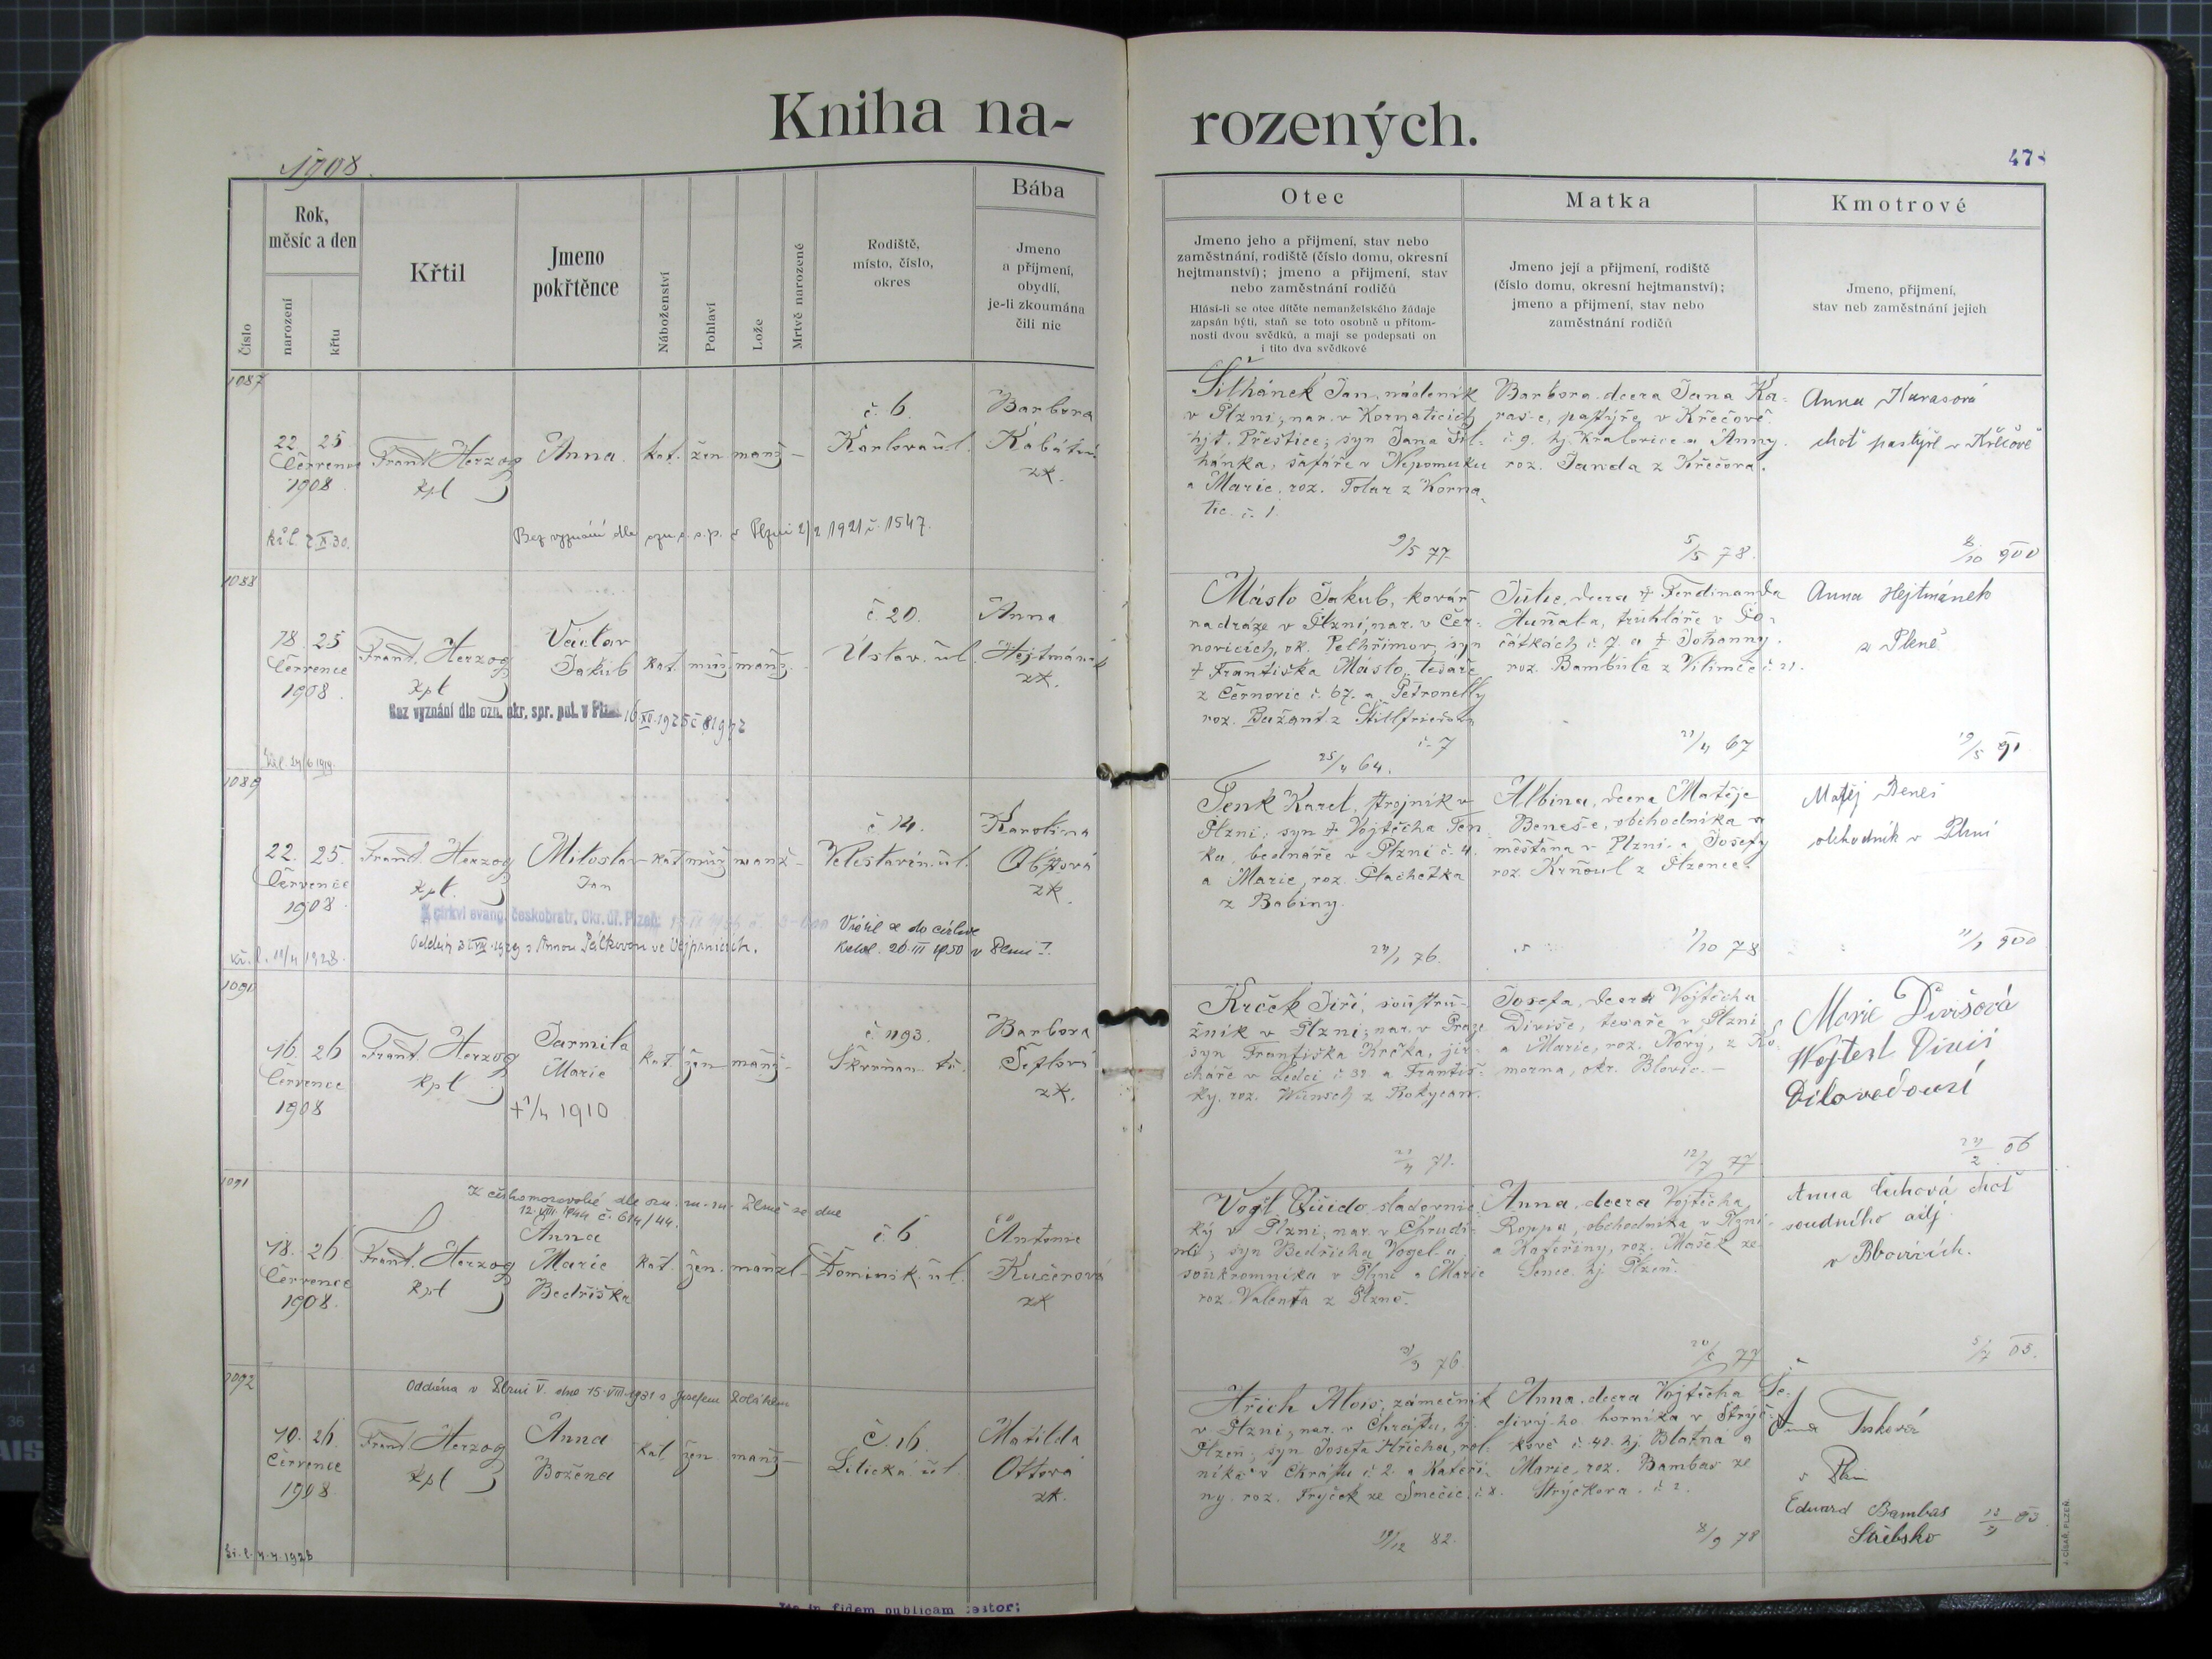 Kniha na-
rozených.
1908.
47
Číslo
Rok,
měsíc a den
narození
křtu
Křtil
Jmeno
pokřtěnce
Náboženství
Pohlaví
Lože
Mrtvě narozené
Rodiště,
místo, číslo,
okres
Bába
Jmeno
a příjmení,
obydlí,
je-li zkoumána
čili nic
Otec
Jmeno jeho a příjmení, stav nebo
zaměstnání, rodiště (číslo domu, okresní
hejtmanství); jmeno a příjmení, stav
nebo zaměstnání rodičů
Hlásí-li se otec dítěte nemanželského žádaje
zapsán býti, staň se toto osobně u přítom-
nosti dvou svědků, a mají se podepsati on
i tito dva svědkové
Matka
Jmeno její a příjmení, rodiště
(číslo domu, okresní hejtmanství);
jmeno a příjmení, stav nebo
zaměstnání rodičů
Kmotrové
Jmeno, příjmení,
stav neb zaměstnání jejich
1087
22. 25
Července
1908.
Frant. Herzog
kpl
Anna
kat. žen. manž. –
č. 6
Karlova ul.
Barbora
Kabátní
zk.
Bez vyznání dle ozn. o. s. p. v Plzni 2/2 1921 č. 1547.
Silhánek Jan, nádeník
v Plzni; nar. v Kornaticích
hjt. Přeštice; syn Jana Sil-
hánka, šafáře v Nepomuku
a Marie, roz. Tolar z Korna-
tic č. 1.
9/5 77
Barbora, dcera Jana Ka-
ras-e, pastýře v Křečově
č. 9. hj. Kralovice a Anny
roz. Janda z Křečova.
5/5 78.
Anna Karasová
choť pastýře v Křečově
8/10 900
1088
18. 25
Července
1908.
Frant. Herzog
kpl
Václav
Jakub
kat. muž. manž. –
č. 20.
Ústav. ul.
Anna
Hejtmánek
zk.
Bez vyznání dle ozn. okr. spr. pol. v Plzni 16 XII. 1925
Máslo Jakub, kovář
na dráze v Plzni, nar. v Čer-
novicích, ok. Pelhřimov, syn
† Františka Máslo, tesaře
z Černovic č. 67. a Petronelly
roz. Bažant z Stillfriedova
č. 7
25/4 64.
Julie, dcera † Ferdinanda
Huňat-a, truhláře v Po-
čátkách č. 7 a † Johanny
roz. Bambula z Vilímče č. 21.
21/4 67
Anna Hejtmánek
z Plzně
19/5 91
1089
22. 25.
Července
1908
Kř. l. 11/4 1928.
Frant. Herzog
kpl.
Miloslav
Jan
kat. muž. manž. –
č. 14.
Veleslavín. ul.
Karolina
zk.
Z církvi evang. českobratr. Okr. úř. Plzeň:
Vrátil se do církve
katol. 26 III 1950 v Plzni I.
Tenk Karel, strojník v
Plzni; syn † Vojtěcha Ten-
ka, bednáře v Plzni č. 4.
a Marie, roz. Plachetka
z Babiny.
24/1 76.
Albina, dcera Matěje
Beneš-e, obchodníka a
měšťana v Plzni a Josefy
roz. Krňoul z Plzence.
1/10 78
Matěj Beneš
obchodník v Plzni
11/1 900
1090
16. 26
Července
1908
Frant. Herzog
kpl.
Jarmila
Marie
† 1/4 1910
kat. žen. manž. –
č. 1193.
Škvrňan. tř.
Barbora
Šeflová
zk.
Krček Jiří, soustru-
žník v Plzni; nar. v Praze
syn Františka Krčka, jir-
cháře v Ledci č. 32 a Františ-
ky, roz. Wünsch z Rokycan.
Josefa, dcera Vojtěcha
Diviše, tesaře v Plzni
a Marie, roz. Nový, z Ko-
morna, okr. Blovic. –
12/7 77
Marie Divišová
Wojtest Diviš
Dílovedoucí
24/2 06
1091
Anna
Marie
Bedřiška
18. 26
Července
1908.
Frant. Herzog
kpl
kat. žen. manžel. –
č. 6
Dominik. ul.
Antonie
Kučerová
zk
Vogl Quido, sladovnic-
ký v Plzni, nar. v Chrudi-
mi; syn Bedřicha Vogel-a,
soukromníka v Plzni a Marie
roz. Valenta z Plzně.
Anna, dcera Vojtěcha
Roppa, obchodníka v Plzni
a Kateřiny, roz. Mašek ze
Senec. hj. Plzeň.
20/6 77
choť
soudního adj.
v Blovicích.
5/7 05.
1092
Oddána v Plzni V. dne 15. VIII. 1931 s Josefem
10. 26.
Července
1908.
Frant. Herzog
kpl
Anna
Božena
kat. žen. manž. –
č. 16.
Litická ul.
Matilda
Ottová
zk.
Hřích Alois, zámečník
v Plzni, nar. v Chrástu, hj.
Plzeň; syn Josefa Hřícha, rol-
níka v Chrástu č. 2. a Kateři-
ny, roz. Fryček ze Smečic č. 8.
19/12 82.
Anna, dcera Vojtěcha Še-
divý-ho horníka v Strýč-
kově č. 42. hj. Blatná a
Marie, roz. Bambas ze
Strýčkova č. 2.
8/9 78
Eduard Bambas
J. CÍSAŘ, PLZEŇ.
in fidem publicam testor: